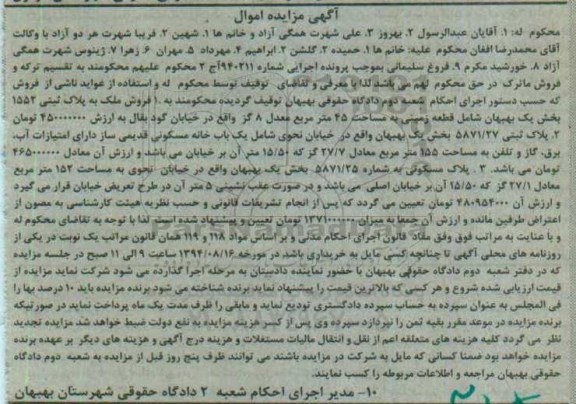 آگهی مزایده اموال
محکوم له: ۱. آقایان عبدالرسول ۲. بهروز ۳. علی شهرت همگی آزاد و خانم ها ۱. شهین ۲. فریبا شهرت هر دو آزاد با وکالت
آقای محمدرضا افغان محکوم علیه: خانم ها ۱. حمیده ۲. گلشن ۳. ابراهیم ۴. مهرداد ۵. مهران ۶. زهرا ۷. ژینوس شهرت همگی
آزاد ۸. خورشید مکرم ۹. فروغ سلیمانی بموجب پرونده اجرایی شماره ۹۴۰۲۱۱آج ۲ محکوم علیهم محکومند به تقسیم ترکه و
فروش ماترک در حق محکوم لهم می باشد لذا با معرفی و تقاضای توقیف توسط محکوم له و استفاده از عواید ناشی از فروش
که حسب دستور اجرای احکام شعبه دوم دادگاه حقوقی بهبهان توقیف گردیده محکومند به ۱. فروش ملک به پلاک ثبتی ۱۵۵۲
بخش یک بهبهان شامل قطعه زمینی به مساحت ۴۵ متر مربع معدل ۸ گز واقع در خیابان گود بقال به ارزش ۴۵۰۰۰۰۰۰ تومان
۲. پلاک ثبتی ۵۸۷۱/۲۷ بخش یک بهبهان واقع در خیابان نحوی شامل یک باب خانه مسکونی قدیمی ساز دارای امتیازات آب،
برق، گاز و تلفن به مساحت ۱۵۵ متر مربع معادل ۲۷/۷ گز که ۱۵/۵۰ متر آن بر خیابان می باشد و ارزش آن معادل ۴۶۵۰۰۰۰۰۰
تومان می باشد. ۳. پلاک مسکونی به شماره ۵۸۷۱/۲۵ بخش یک بهبهان واقع در خیابان نحوی به مساحت ۱۵۲ متر مربع
معادل ۲۷/۱ گز که ۱۵/۵۰ آن بر خیابان اصلی می باشد و در صورت عقب نشینی ۵ متر آن در طرح تعریض خیابان قرار می گیرد
و ارزش آن ۴۸۰۹۵۴۰۰۰ تومان تعیین می گردد که پس از انجام تشریفات قانونی و حسب نظریه هیئت کارشناسی به مصون از
اعتراض طرفین مانده و ارزش آن جمعا به میزان ۱۳۷۱۰۰۰۰۰۰ تومان تعیین و پیشنهاد شده است لذا با توجه به تقاضای محکوم له
و با عنایت به مراتب فوق وفق مفاد قانون اجرای احکام مدنی و بر اساس مواد ۱۱۸ و ۱۱۹ همان قانون مراتب یک نوبت در یکی از
روزنامه های محلی آگهی تا چنانچه کسی مایل به خریداری باشد در مورخه ۱۳۹۴/۰۸/۱۶ ساعت ۹ الی ۱۱ صبح در جلسه مزایده
که در دفتر شعبه دوم دادگاه حقوقی بهبهان با حضور نماینده دادستان به مرحله اجرا گذارده می شود شرکت نماید مزایده از
قیمت ارزیابی شده شروع و هر کسی که بالاترین قیمت را پیشنهاد نماید برنده شناخته می شود برنده مزایده باید ۱۰ درصد بها را
فی المجلس به عنوان سپرده به حساب سپرده دادگستری تودیع نماید و مابقی را ظرف مدت یک ماه پرداخت نماید در صورتیکه
برنده مزایده در موعد مقرر بقیه ثمن را نپردازد سپرده وی پس از کسر هزینه مزایده به نفع دولت ضبط خواهد شد مزایده تجدید
نظر می گردد کلیه هزینه های متعلقه اعم از نقل و انتقال مالیات مستغلات و هزینه درج آگهی و هزینه های دیگر بر عهده برنده
مزایده خواهد بود ضمنا کسانی که مایل به شرکت در مزایده باشند می توانند ظرف پنج روز قبل از مزایده به شعبه دوم دادگاه
حقوقی بهبهان مراجعه و اطلاعات مربوطه را کسب نمایند.
۱۰- مدیر اجرای احکام شعبه ۲ دادگاه حقوقی شهرستان بهبهان